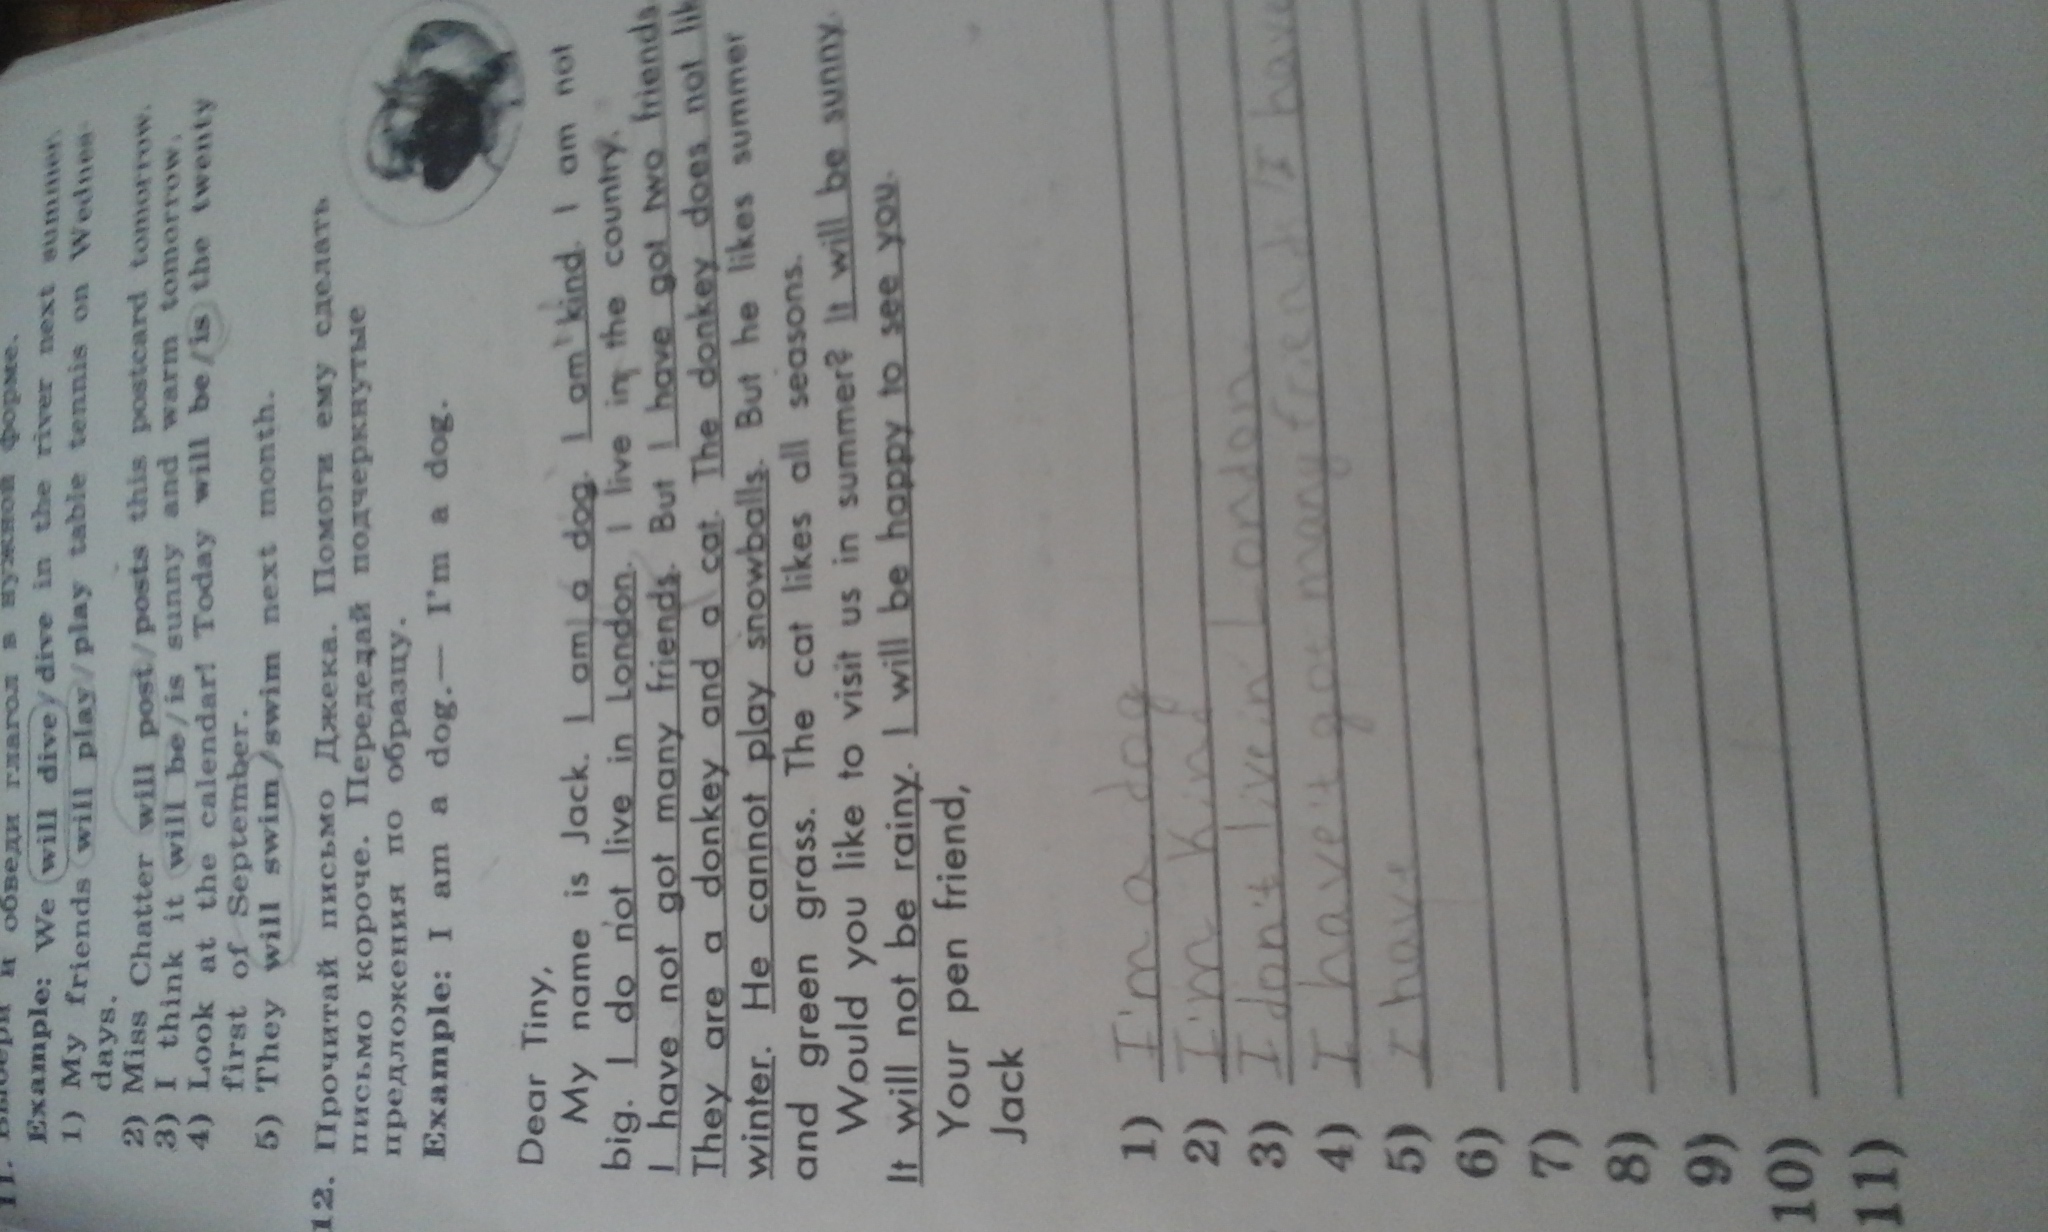 11. и обведи глагол в нужной форме.
Example: We will dive/dive in the river next summer.
1) My friends will play/play table tennis on Wednes-
days.
2) Miss Chatter will post/posts this postcard tomorrow.
3) I think it will be/is sunny and warm tomorrow.
4) Look at the calendar! Today will be/is the twenty
first of September.
5) They will swim/swim next month.
12. Прочитай письмо Джека. Помоги ему сделать
письмо короче. Передай подчеркнутые
предложения по образцу.
Example: I am a dog.— I'm a dog.
Dear Tiny,
My name is Jack. I am a dog. I am kind. I am not
big. I do not live in London. I live in the country.
I have not got many friends. But I have got two friends.
They are a donkey and a cat. The donkey does not lik
winter. He cannot play snowballs. But he likes summer
and green grass. The cat likes all seasons.
Would you like to visit us in summer? It will be sunny.
It will not be rainy. I will be happy to see you.
Your pen friend,
Jack
1) I'm a dog
2) I'm kind
3) I don't live in London
4) I have't got many friend I have
5) I have
6)
7)
8)
9)
10)
11)